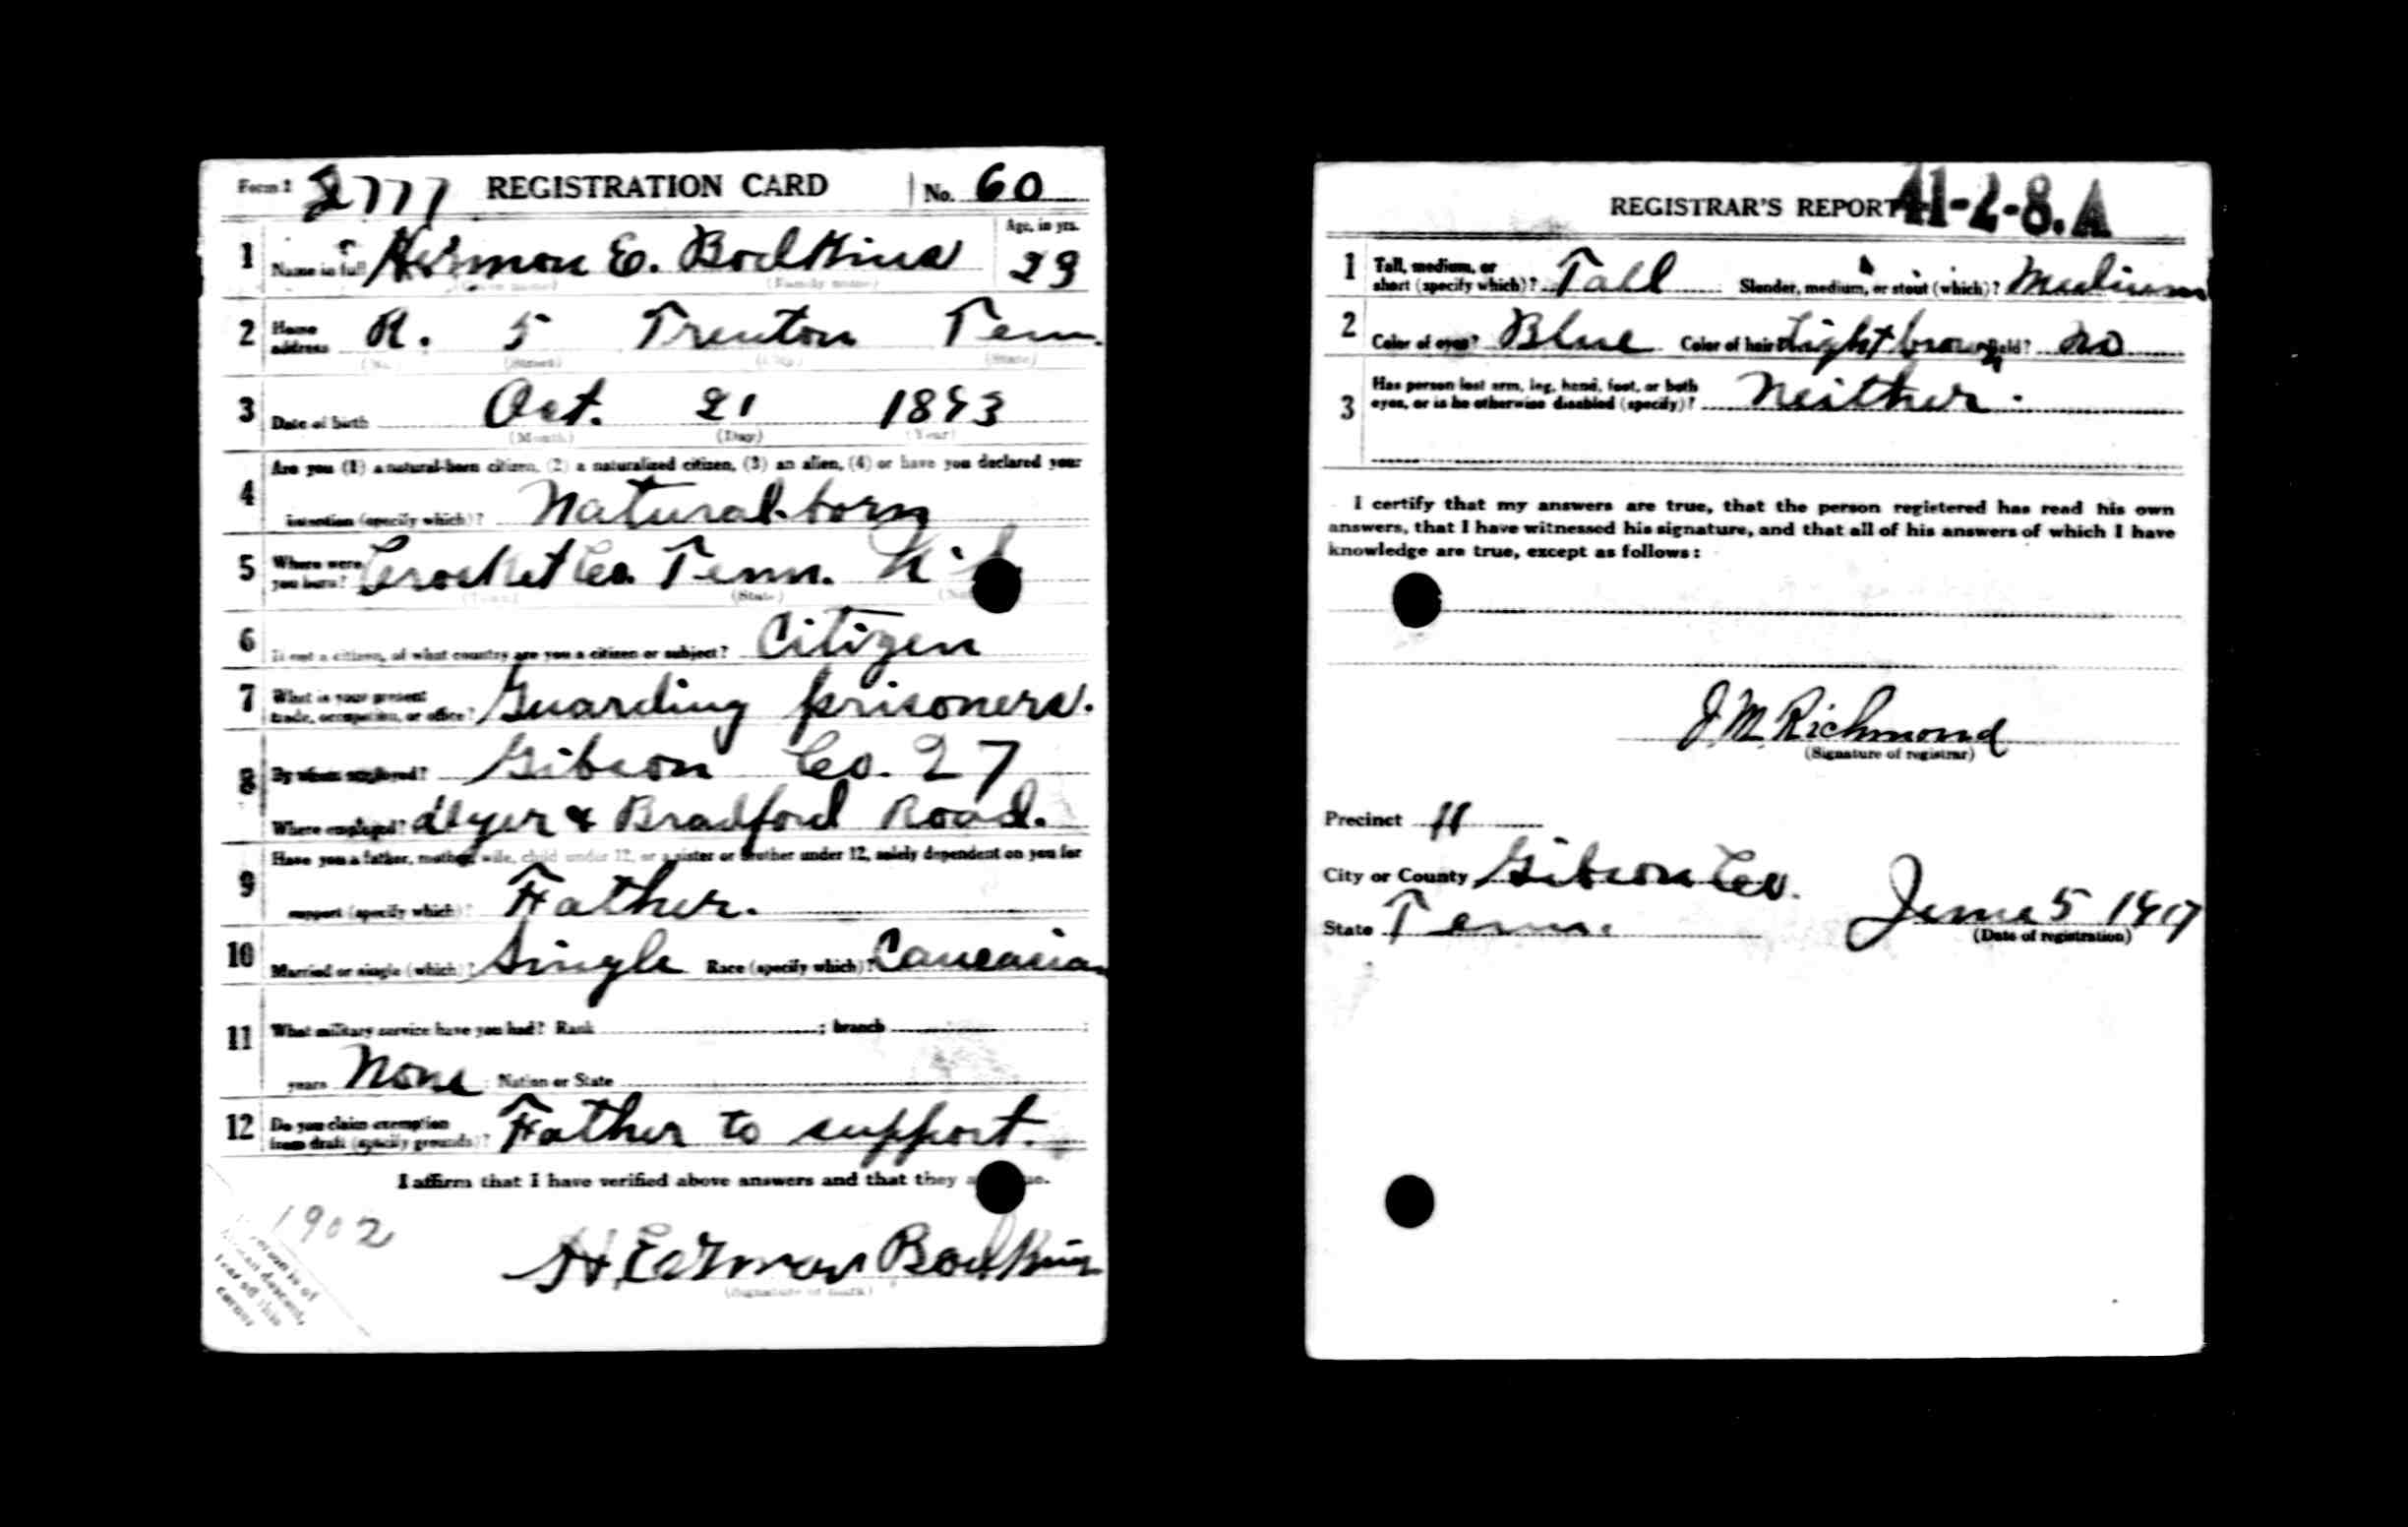 Form 1 2777 REGISTRATION CARD No. 60
1 Name in full Hermon E. Bodkins Age, in yrs. 23
(Given name) (Family name)
2 Home address R. 5 Trenton Tenn.
(No.) (Street) (City) (State)
3 Date of birth Oct. 21 1893
(Month) (Day) (Year)
Are you (1) a natural-born citizen, (2) a naturalized citizen, (3) an alien, (4) or have you declared your
4 intention (specify which)? Natural-born
5 Where were you born? Crocket Co. Tenn.
(Town) (State)
6 If not a citizen, of what country are you a citizen or subject? Citizen
7 What is your present trade, occupation, or office? Guarding prisoners.
8 By whom employed? Gibson Co. 27
Where employed? Dyer & Bradford Road.
Have you a father, mother, wife, child under 12, or a sister or brother under 12, solely dependent on you for
9 support (specify which)? Father.
10 Married or single (which)? Single Race (specify which)? Caucasian
11 What military service have you had? Rank ; branch ;
years None ; Nation or State
12 Do you claim exemption from draft (specify grounds)? Father to support.
I affirm that I have verified above answers and that they
1902
H Eermon Bodkins
person is of
African descent,
tear off this
corner
REGISTRAR'S REPORT 41-2-8. A
1 Tall, medium, or short (specify which)? Tall Slender, medium, or stout (which)? Medium
2 Color of eyes? Blue Color of hair? Light brown Bald? No
3 Has person lost arm, leg, hand, foot, or both eyes, or is he otherwise disabled (specify)? Neither.
I certify that my answers are true, that the person registered has read his own
answers, that I have witnessed his signature, and that all of his answers of which I have
knowledge are true, except as follows:
J. M. Richmond
(Signature of registrar)
Precinct 11
City or County Gibson Co.
State Tenn. June 5 1917
(Date of registration)